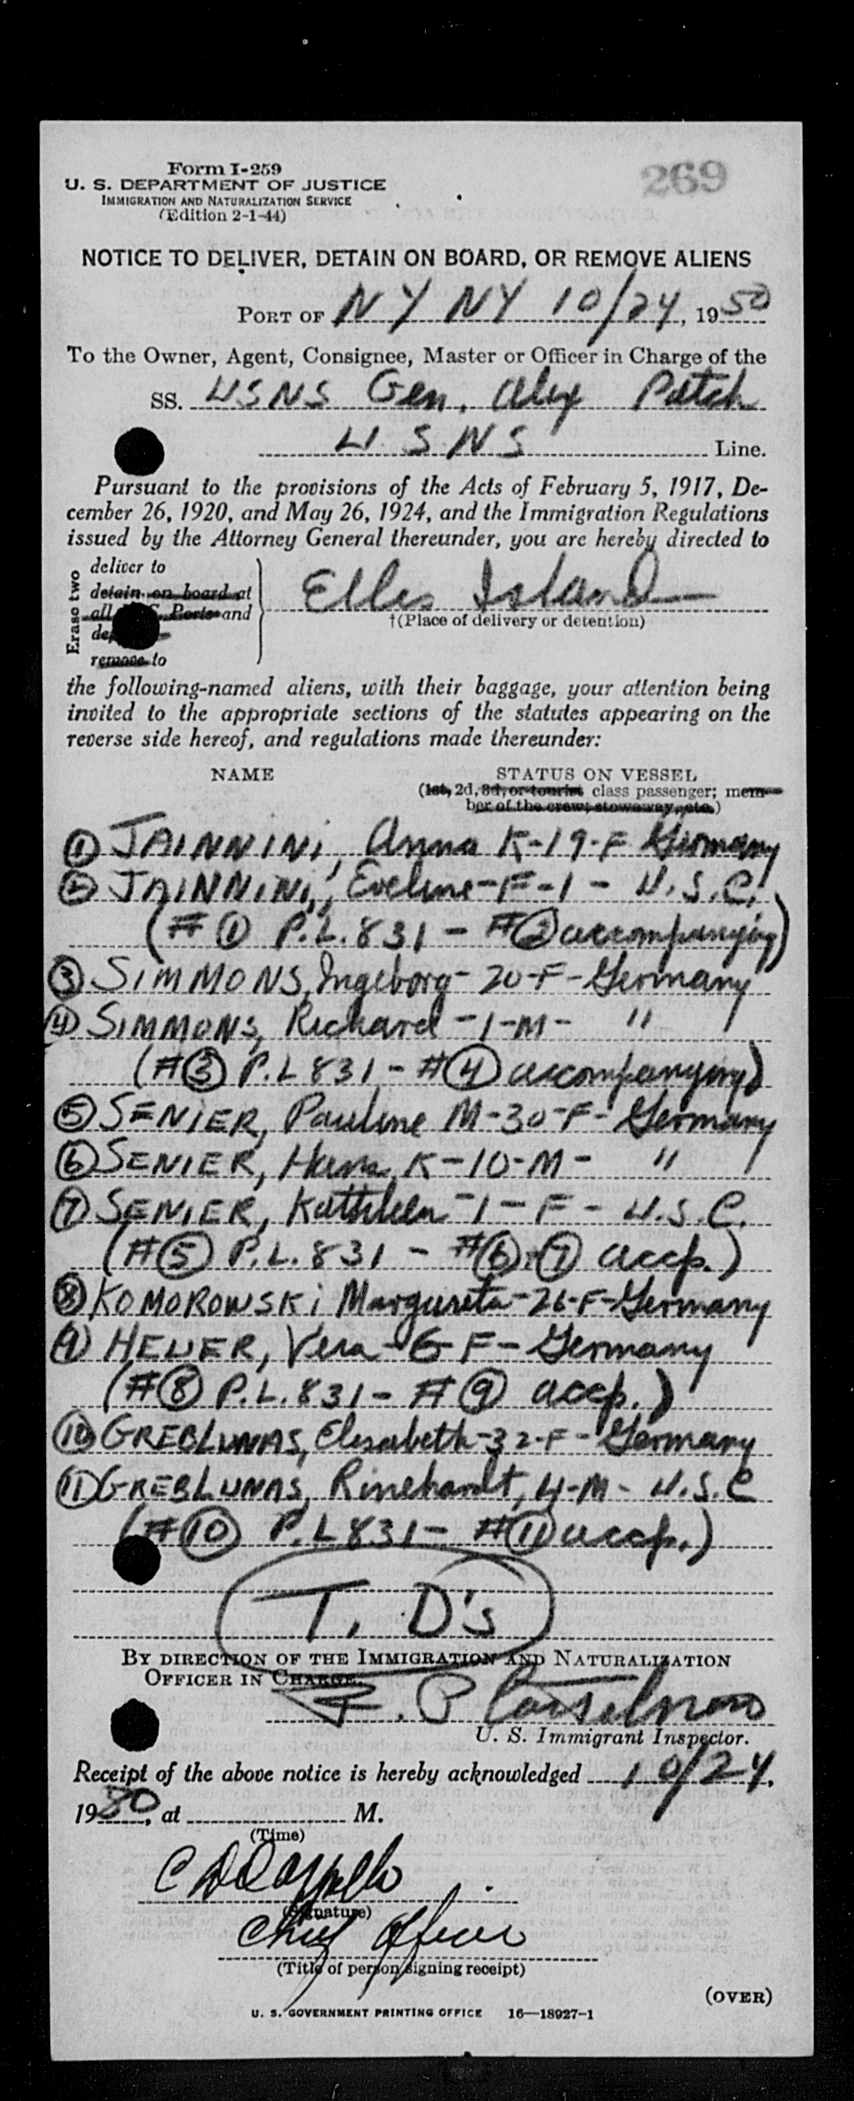 Form I-259
269
U. S. DEPARTMENT OF JUSTICE
IMMIGRATION AND NATURALIZATION SERVICE
(Edition 2-1-44)
NOTICE TO DELIVER, DETAIN ON BOARD, OR REMOVE ALIENS
PORT OF NY NY 10/24, 1950
To the Owner, Agent, Consignee, Master or Officer in Charge of the
SS. USNS Gen. Alex Patch
USNS Line.
Pursuant to the provisions of the Acts of February 5, 1917, De-
cember 26, 1920, and May 26, 1924, and the Immigration Regulations
issued by the Attorney General thereunder, you are hereby directed to
Erase two
deliver to
detain on board at
all U.S. Ports and
remove to
Ellis Island
†(Place of delivery or detention)
the following-named aliens, with their baggage, your attention being
invited to the appropriate sections of the statutes appearing on the
reverse side hereof, and regulations made thereunder:
NAME STATUS ON VESSEL
(1st, 2d, 3d, or tourist class passenger; mem-
ber of the crew; stowaway, etc.)
① JAINNINI, Anna K-19-F Germany
② JAINNINI, Eveline-F-1- U.S.C.
(#① P.L. 831 - #② accompanying)
③ SIMMONS, Ingeborg-20-F-Germany
④ SIMMONS, Richard-1-M- "
(#③ P.L 831 - #④ accompanying)
⑤ SENIER, Pauline M-30-F-Germany
⑥ SENIER, Hans K-10-M- "
⑦ SENIER, Kathleen-1-F-U.S.C.
(#⑤ P.L. 831 - #⑥+⑦ accp.)
⑧ KOMOROWSKI Margareta-26-F-Germany
⑨ HEUER, Vera-6-F-Germany
(#⑧ P.L. 831 - #⑨ accp.)
⑩ GREBLUNAS, Elisabeth-32-F-Germany
⑪ GREBLUNAS, Rinehardt, 4-M-U.S.C
(#⑩ P.L 831 - #⑪ accp.)
T. D's
BY DIRECTION OF THE IMMIGRATION AND NATURALIZATION
OFFICER IN CHARGE.
U. S. Immigrant Inspector.
Receipt of the above notice is hereby acknowledged 10/24,
1950, at M.
(Time)
(Signature)
Chief Officer
(Title of person signing receipt)
(OVER)
U. S. GOVERNMENT PRINTING OFFICE 16—18927-1